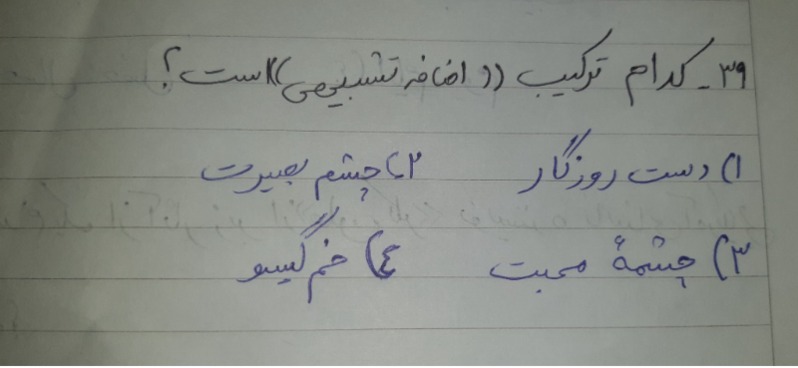 ۳۹- کدام ترکیب ((اضافه تشبیهی)) است؟
۱) دست روزگار ۲) چشم بصیرت
۳) چشمهٔ محبت ٤) خم گیسو